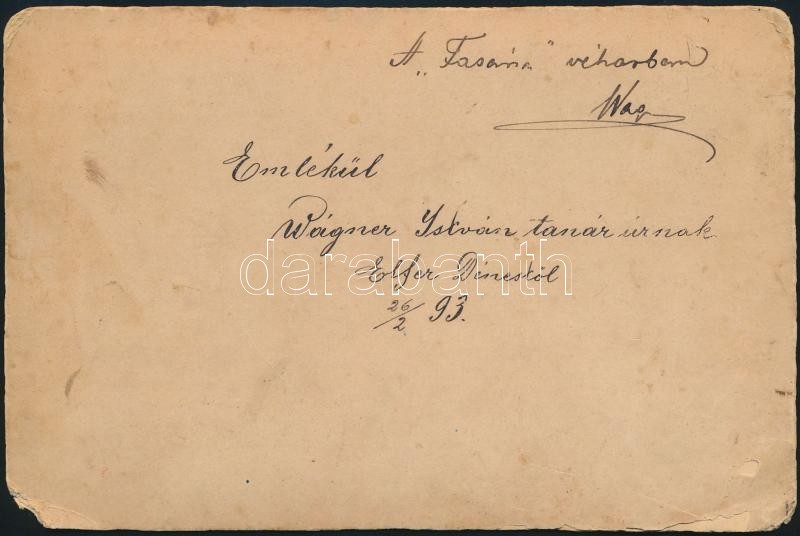 A „Fasána" viharban
Wag
Emlékül
Wágner István tanár úrnak
Elfer Dénestől
26/2 93.
darabanth